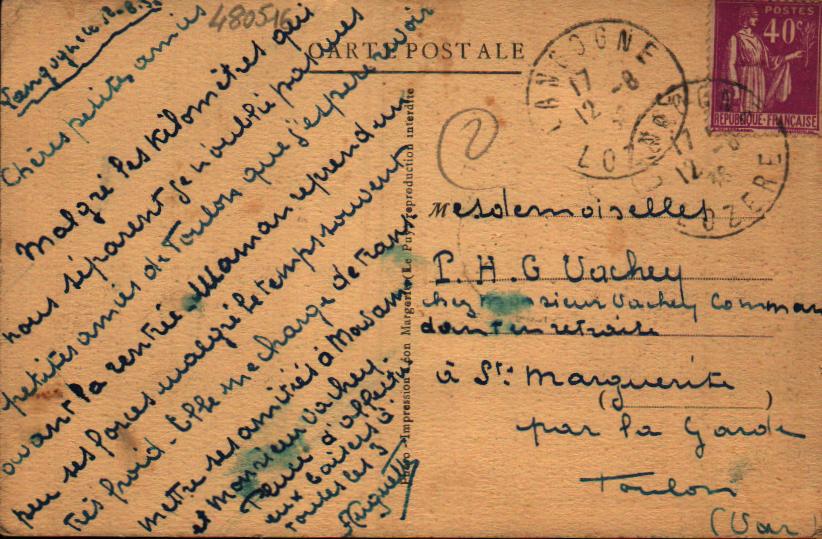 480516
Chères petites amies
Malgré les Kilomètres qui
nous séparent je n'oublie pas mes
petites amies de Toulon que j'espère revoir
avant la rentrée. Maman reprend un
peu ses forces malgré le temps souvent
très froid. Elle me charge de trans
mettre ses amitiés à Madame
et Monsieur Vachey.
d'affectu
eux baisers à
toutes les 3
Huguette
CARTE POSTALE
Impression Léon Margerit, Le Puy, reproduction interdite
2
LANGOGNE
17 -8
12
POSTES
40c
REPUBLIQUE-FRANÇAISE
17
12
LOZERE
Mesdemoiselles
P. H. G Vachey
chez Monsieur Vachey Comman
dant en retraite
à Ste Marguerite
par la Garde
Toulon
(Var)